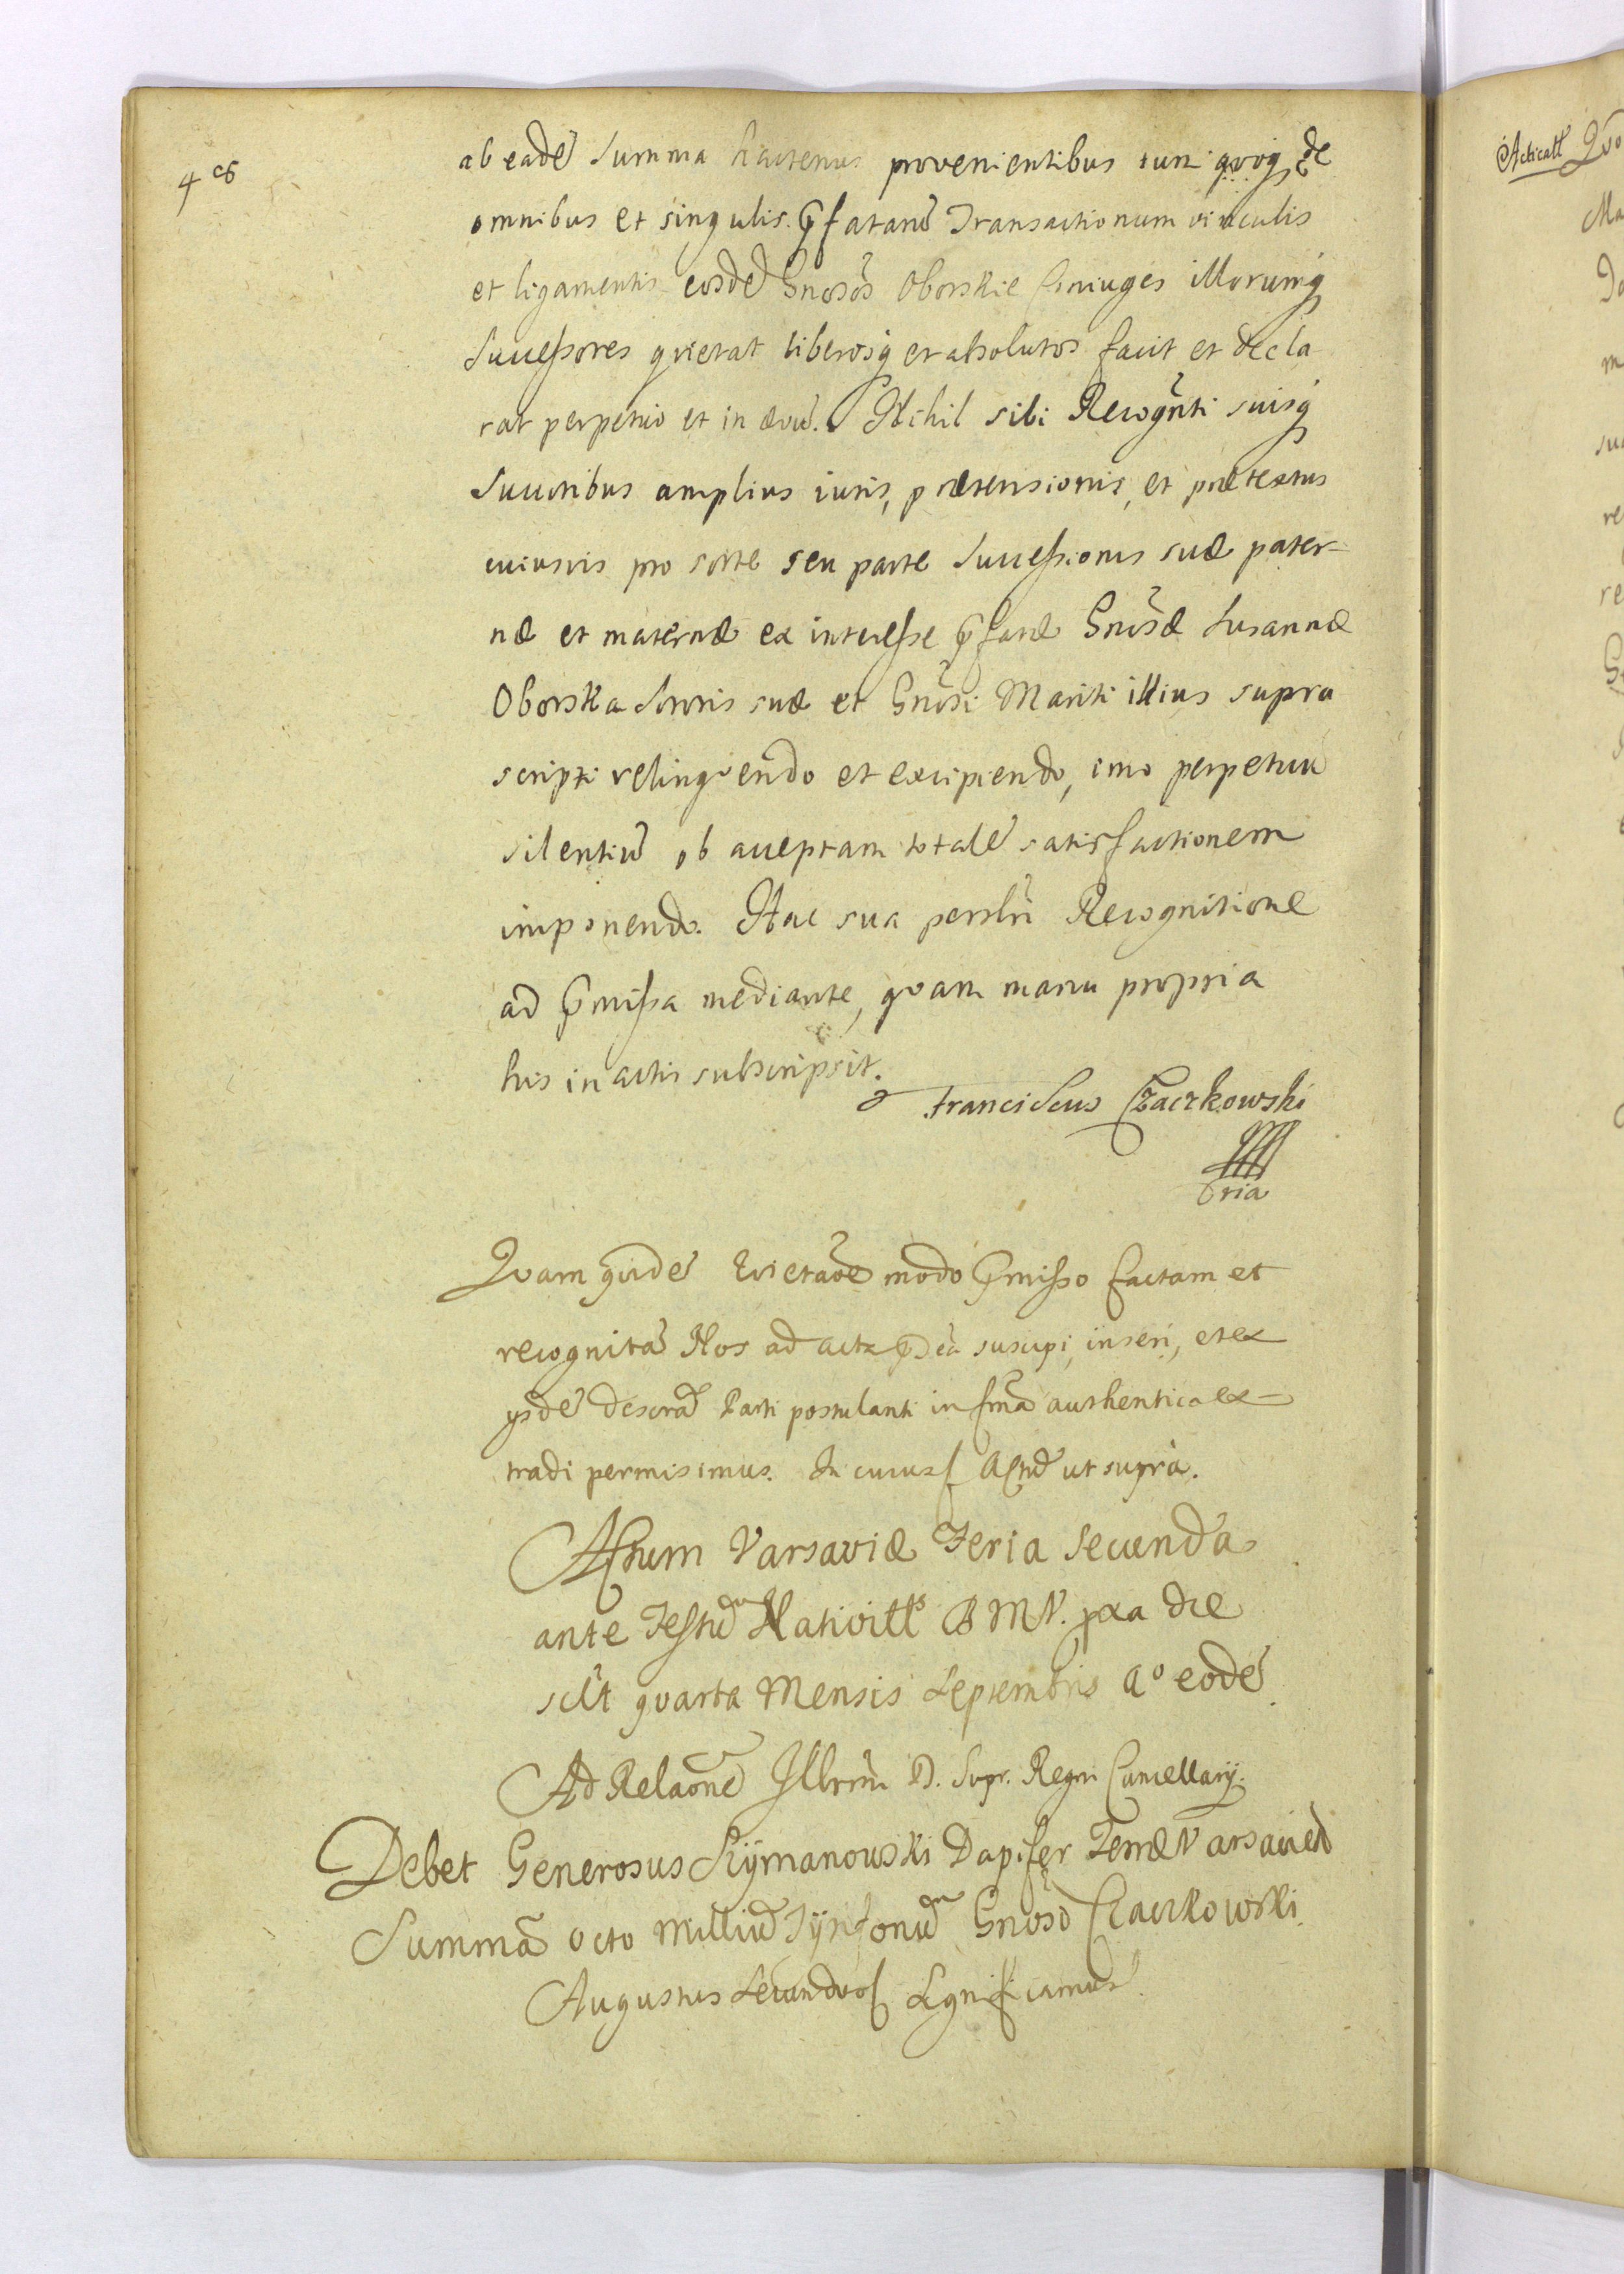 4 c8
ab eadē Summa hactenus provenientibus tum quoq de
omnibus et singulis p̄fatarū Transactionum vinculis
et ligamentis eosdē Gnosos Oborskie Coniuges illorumq
Successores quietat liberosq et absolutos facit et decla
rat perpetuo et in ævū. Nihil sibi Recognti suisq
Succribus amplius iuris, prætensionis, et prætextus
cuiusvis pro sorte seu parte Successionis suæ pater-
næ et maternæ ex interesse p̄fatæ Gnosæ Susannæ
Oborska Sororis suæ et Gnosi Mariti illius supra
scripti relinquendo et excipiendo, imo perpetuū
silentiū ob acceptam totalē satisfactionem
imponendo. Hac sua persnli Recognitione
ad p̄missa mediante, quam manu propria
his in actis subscripsit.
Franciscus Czaczkowski
mpria
Quam quidē Quietaōe modo p̄misso factam et
recognitā Nos ad acta p̄ntia suscipi, inseri, et ex
ijsdē descrā Parti postulanti in fmā authentica ex-
tradi permisimus. In cuius Actū ut supra.
Actum Varsaviæ Feria Secunda
ante Festū Nativitts B M V. pxa die
scilt quarta Mensis Septembris Ao eodē
Ad Relaōnē Illrmi D. Supr. Regni Cancellarij.
Debet Generosus Szymanowski Dapifer Terræ Varsavien
Summā octo milliū Tynfonū Gnoso Czaczkowski
Augustus Secundus Significamus
Acticatt Quo
Ma